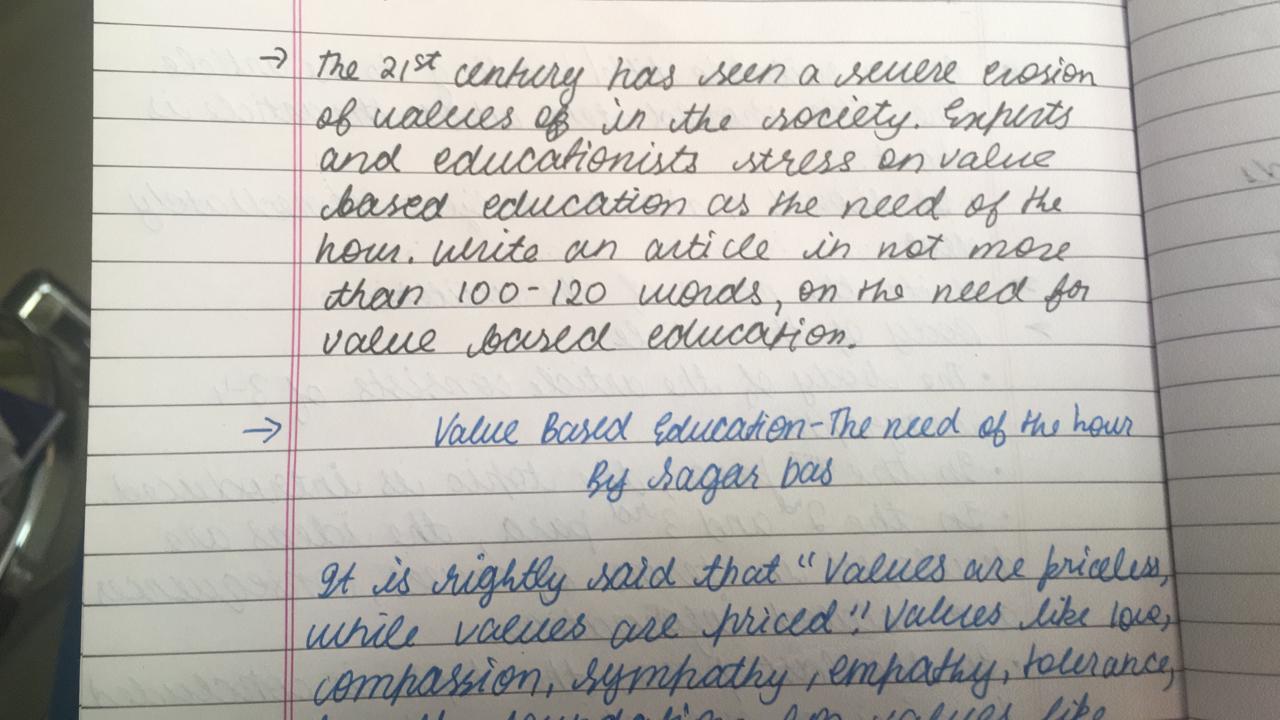 → The 21st century has seen a severe erosion
of values of in the society. Experts
and educationists stress on value
based education as the need of the
hour. Write an article in not more
than 100-120 words, on the need for
value based education.
→ Value Based Education-The need of the hour
By Sagar Das
It is rightly said that "Values are priceless,
while values are priced". Values like love,
compassion, sympathy, empathy, tolerance,
values like